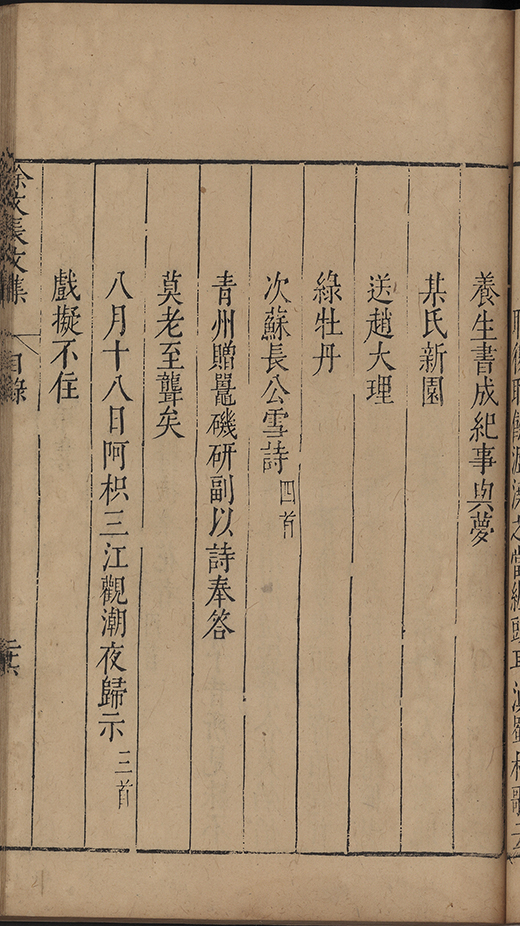 養生書成紀事與夢
某氏新園
送趙大理
綠牡丹
次蘇長公雪詩四首
青州贈鼍磯研副以詩奉答
莫老至聾矣
八月十八日阿枳三江觀潮夜歸示三首
戲擬不住
徐文長文集
目錄